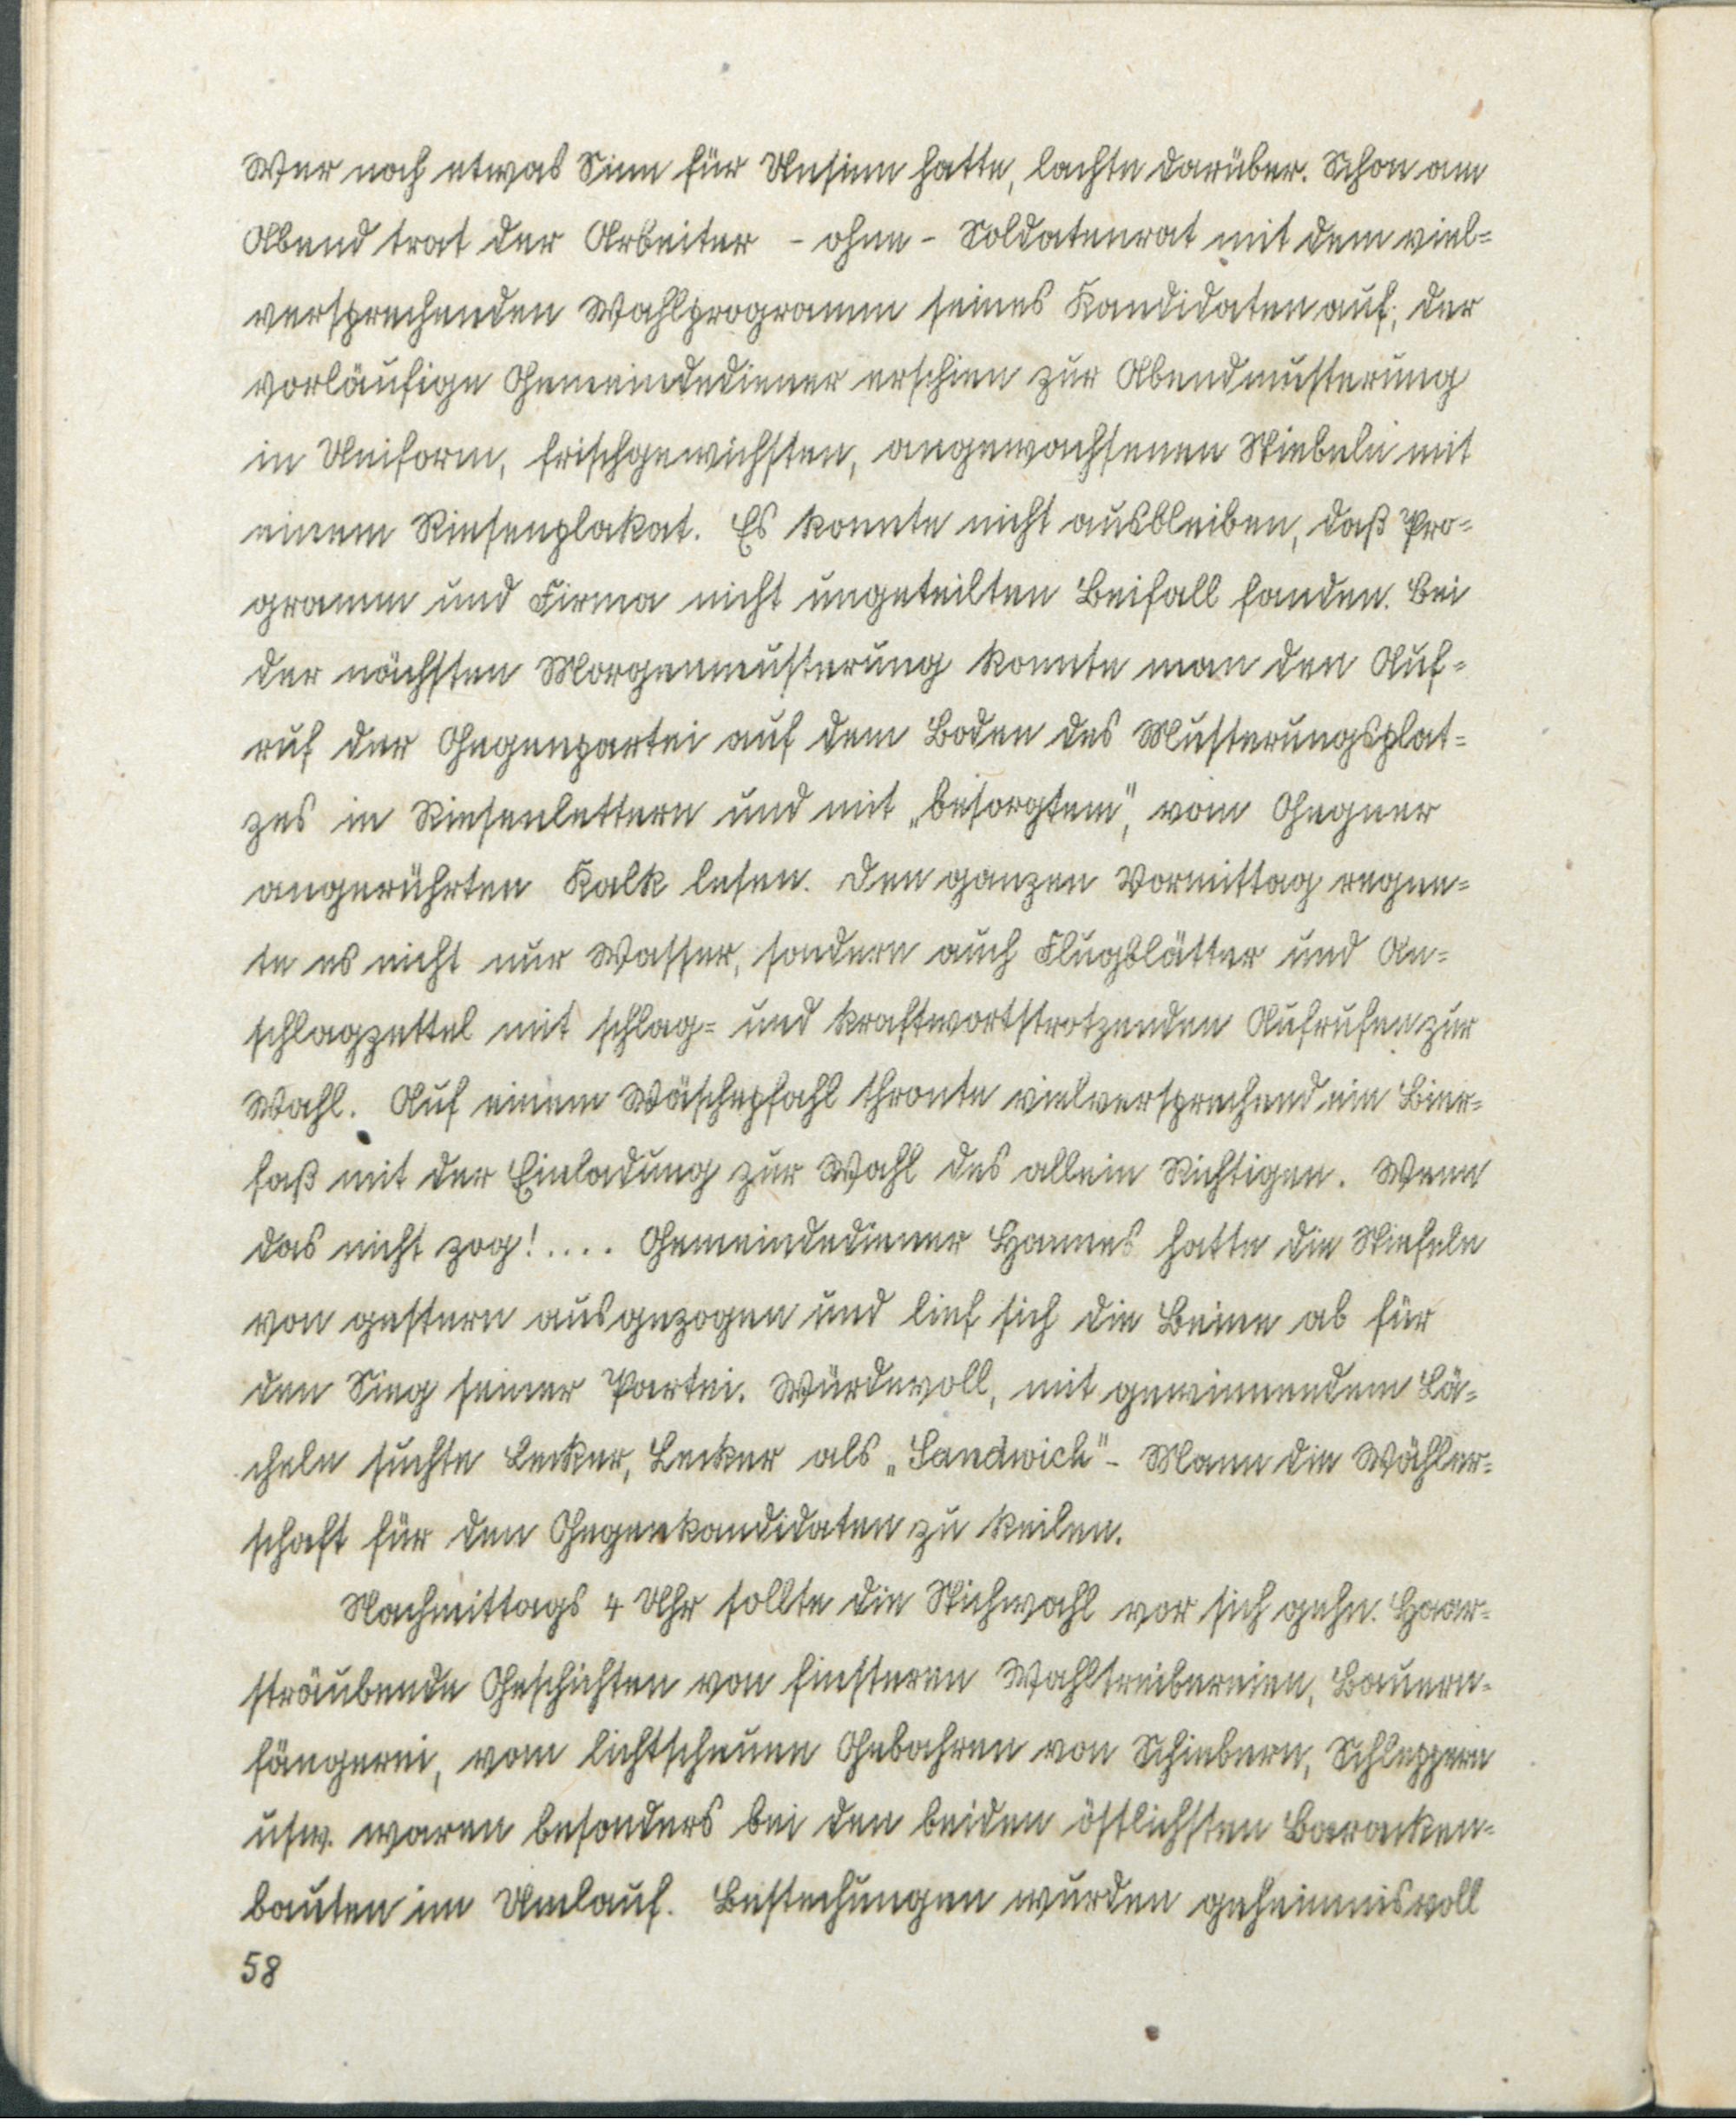 Wer noch etwas Sinn für Unsinn hatte, lachte darüber. Schon am
Abend trat der Arbeiter - ohne - Soldatenrat mit dem viel=
versprechenden Wahlprogramm seines Kandidaten auf; der
vorläufige Gemeindediener erschien zur Abendmusterung
in Uniform, frischgewichsten, angewachsenen Stiebeln mit
einem Riesenplakat. Es konnte nicht ausbleiben, daß Pro=
gramm und Firma nicht ungeteilten Beifall fanden. Bei
der nächsten Morgenmusterung konnte man den Auf=
ruf der Gegenpartei auf dem Boden des Musterungsplat=
zes in Riesenlettern und mit „besorgtem", vom Gegner
angerührten Kalk lesen. Den ganzen Vormittag regne=
te es nicht nur Wasser, sondern auch Flugblätter und An=
schlagzettel mit schlag= und kraftwortstrotzenden Aufrufen zur
Wahl. Auf einem Wäschepfahl thronte vielversprechend ein Bier=
faß mit der Einladung zur Wahl des allein Richtigen. Wenn
das nicht zog!.... Gemeindediener Hannes hatte die Stiefeln
von gestern ausgezogen und lief sich die Beine ab für
den Sieg seiner Partei. Würdevoll, mit gewinnendem Lä=
cheln suchte Lecker, Lecker als „Sandwich"- Mann die Wähler=
schaft für den Gegenkandidaten zu keilen.
Nachmittags 4 Uhr sollte die Stichwahl vor sich gehn. Haar=
sträubende Geschichten von finsteren Wahltreibereien, Bauern=
fängerei, vom lichtscheuen Gebahren von Schiebern, Schleppern
usw. waren besonders bei den beiden östlichsten Baracken=
bauten im Umlauf. Bestechungen wurden geheimnisvoll
58